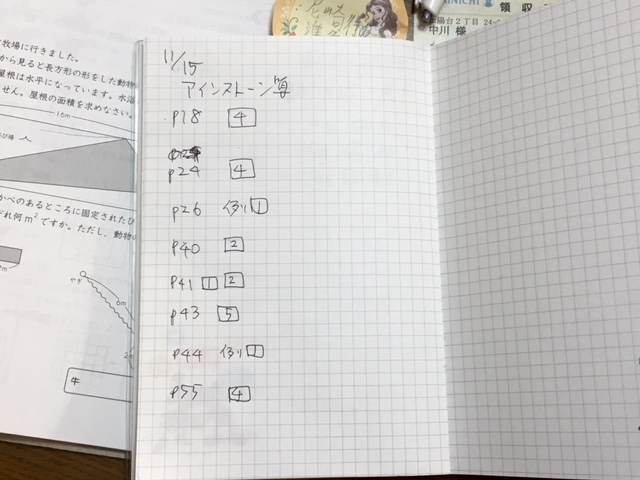 牧場に行きました。
から見ると長方形の形をした動物
屋根は水平になっています。水浴
せん。屋根の面積を求めなさい。
16m
かべのあるところに固定されたひ
れ何m²ですか。ただし、動物の
やぎ
6m
牛
領収
中川 様
11/15
アインストーン算
p18 4
p24 4
p26 例り1
p40 2
p41 1 2
p43 5
p44 例り1
p55 4